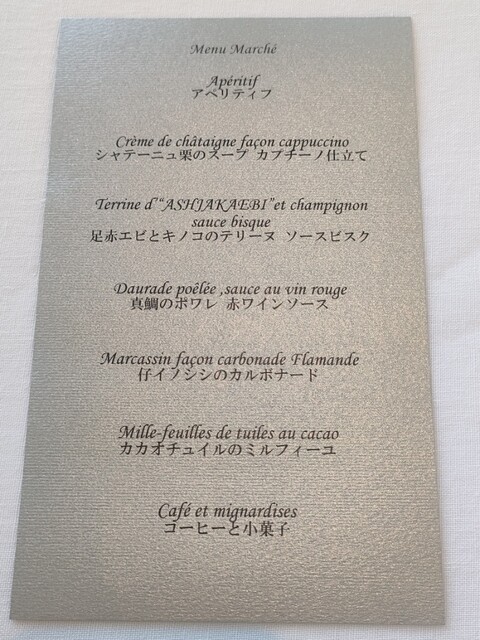 Menu Marché
Apéritif
アペリティフ
Crème de châtaigne façon cappuccino
シャテーニュ栗のスープ カプチーノ仕立て
Terrine d'"ASHJAKAEBI"et champignon
sauce bisque
足赤エビとキノコのテリーヌ ソースビスク
Daurade poêlée ,sauce au vin rouge
真鯛のポワレ 赤ワインソース
Marcassin façon carbonade Flamande
仔イノシシのカルボナード
Mille-feuilles de tuiles au cacao
カカオチュイルのミルフィーユ
Café et mignardises
コーヒーと小菓子